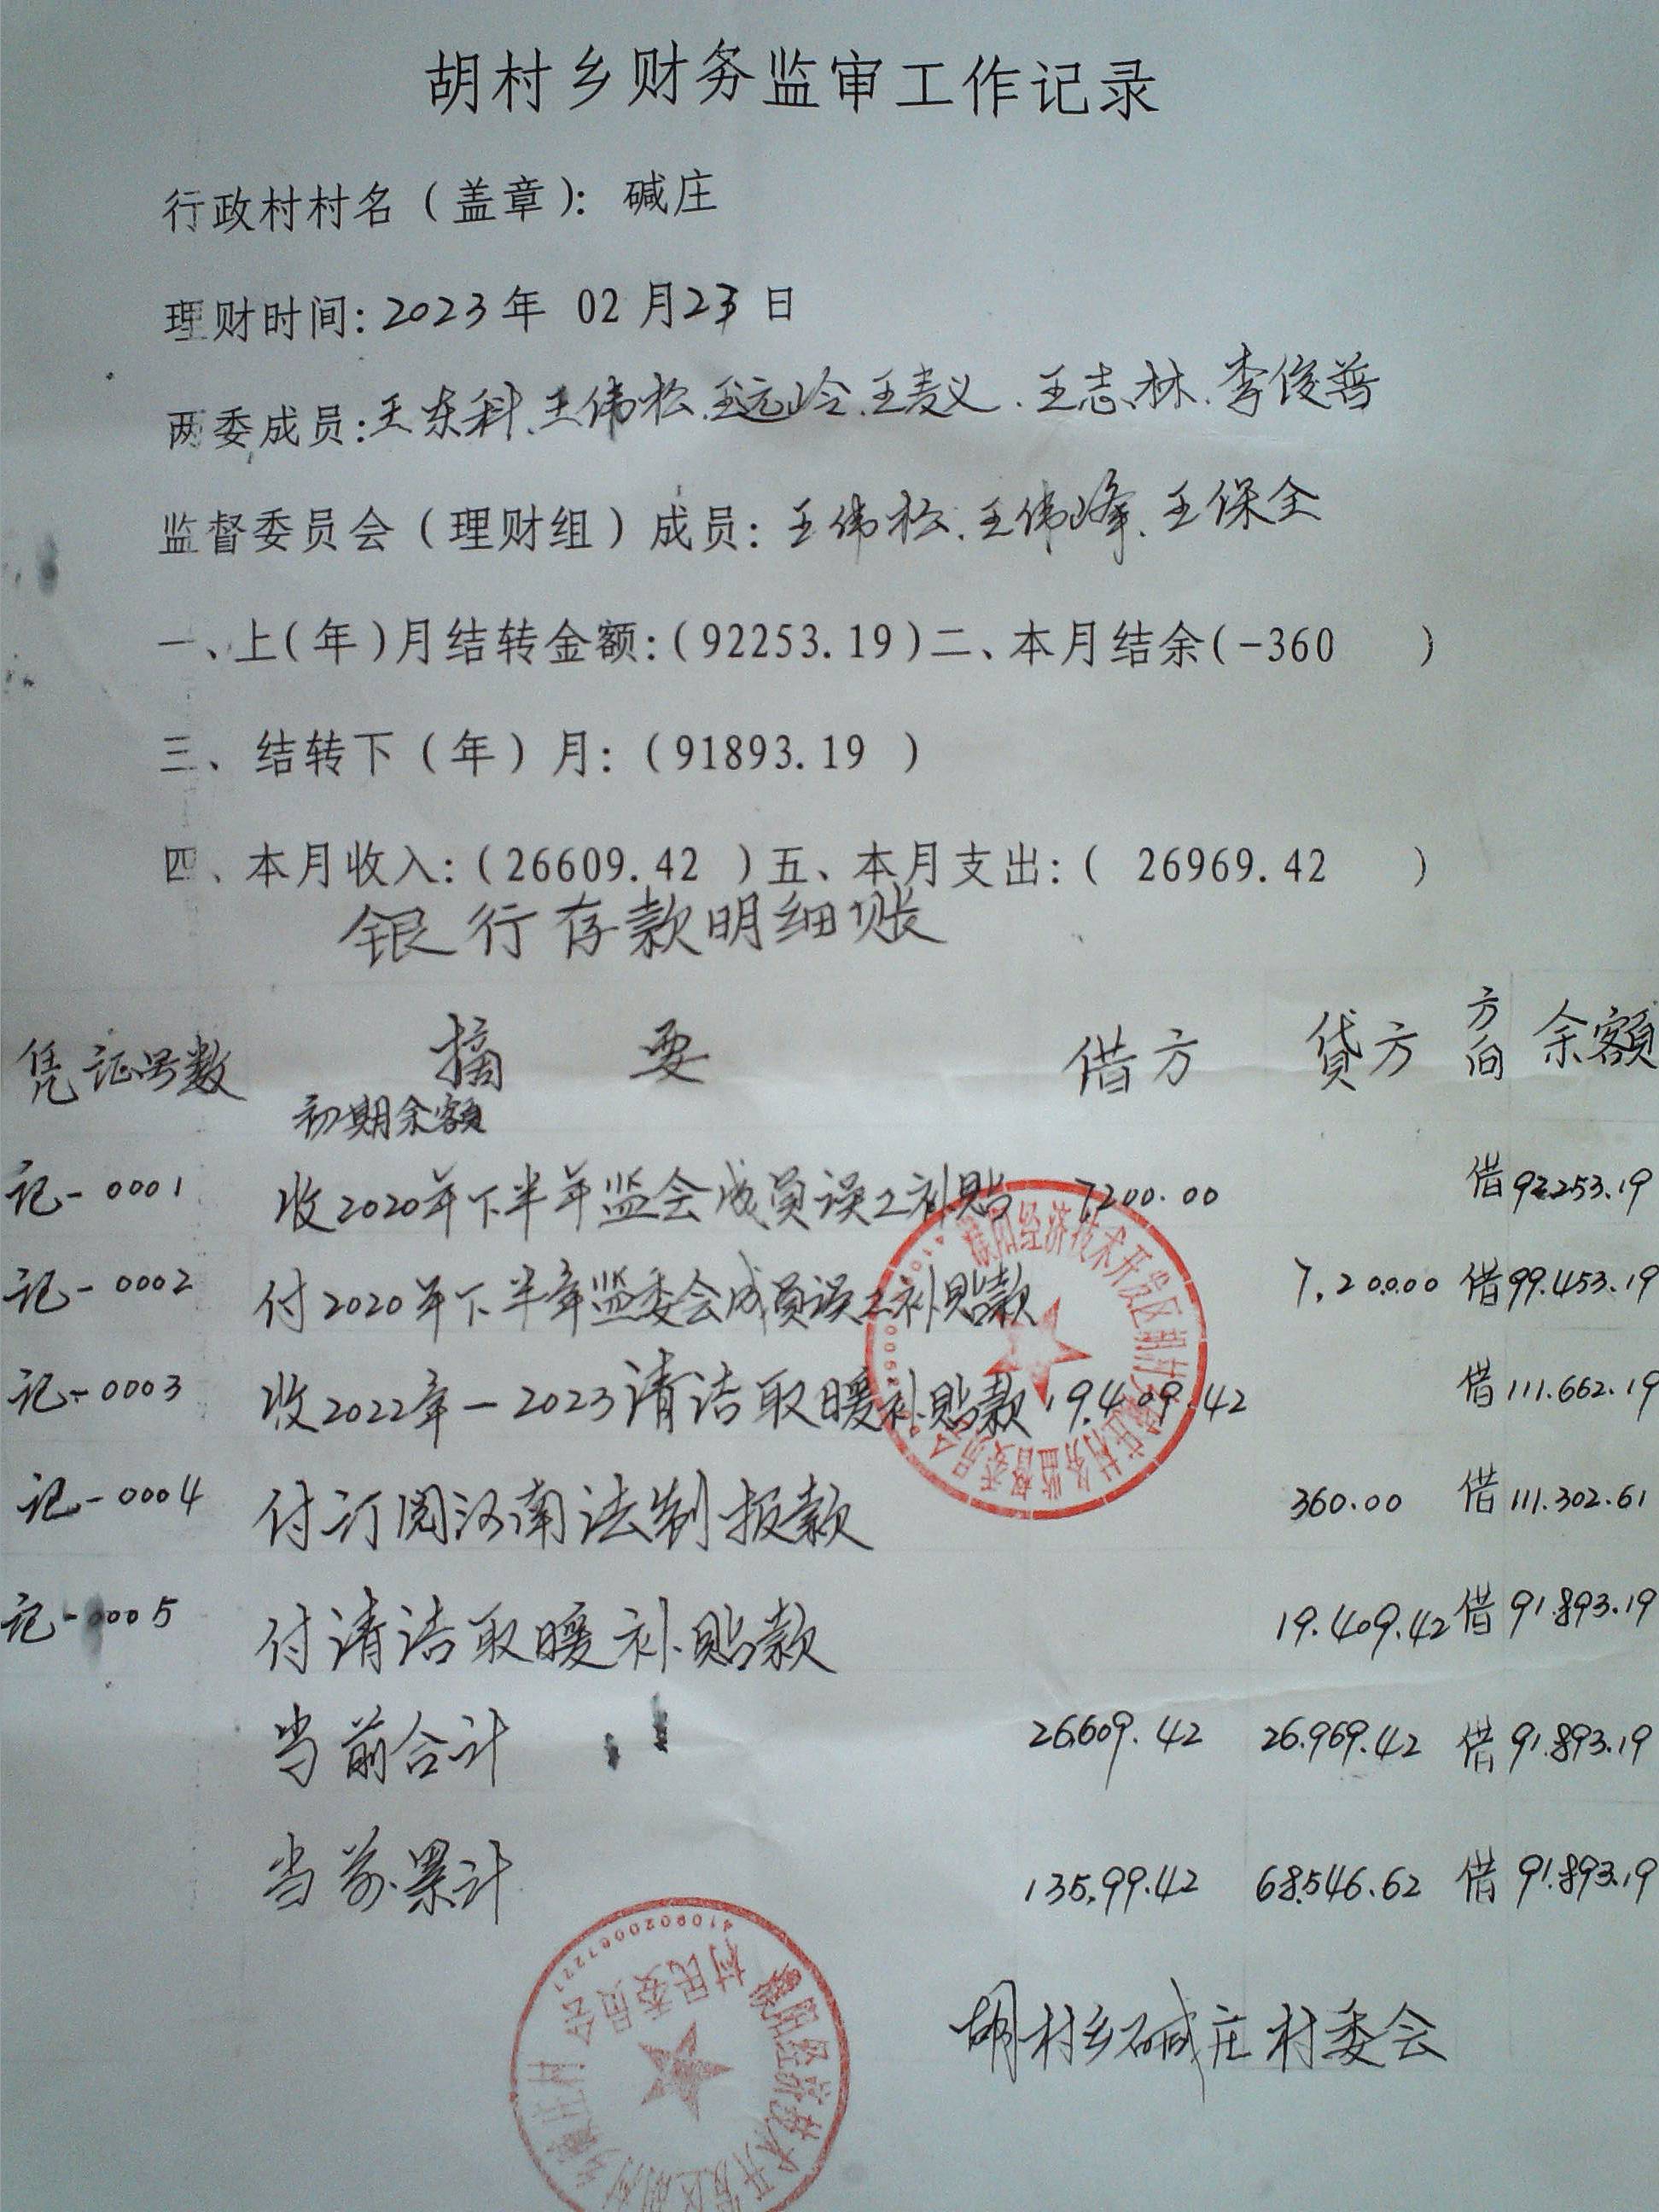 胡村乡财务监审工作记录
行政村村名（盖章）：碱庄
理财时间：2023年 02月23日
两委成员：王东科、王伟松、王远岭、王麦义、王志林、李俊普
监督委员会（理财组）成员：王伟松、王伟峰、王保全
一、上(年)月结转金额：(92253.19)二、本月结余(-360 )
三、结转下（年）月：(91893.19 )
四、本月收入：(26609.42 )五、本月支出：( 26969.42 )
银行存款明细账
凭证号数 摘要 借方 贷方 方向 余额
初期余额
记-0001 收2020年下半年监会成员误工补贴 7200.00 借 92253.19
记-0002 付2020年下半年监委会成员误工补贴款 7,200.00 借 99.453.19
记-0003 收2022年-2023清洁取暖补贴款 19.409.42 借 111.662.19
记-0004 付订阅河南法制报款 360.00 借 111.302.61
记-0005 付清洁取暖补贴款 19.409.42 借 91.893.19
当前合计 26.609.42 26.969.42 借 91.893.19
当前累计 135.99.42 68.546.62 借 91.893.19
胡村乡碱庄村委会